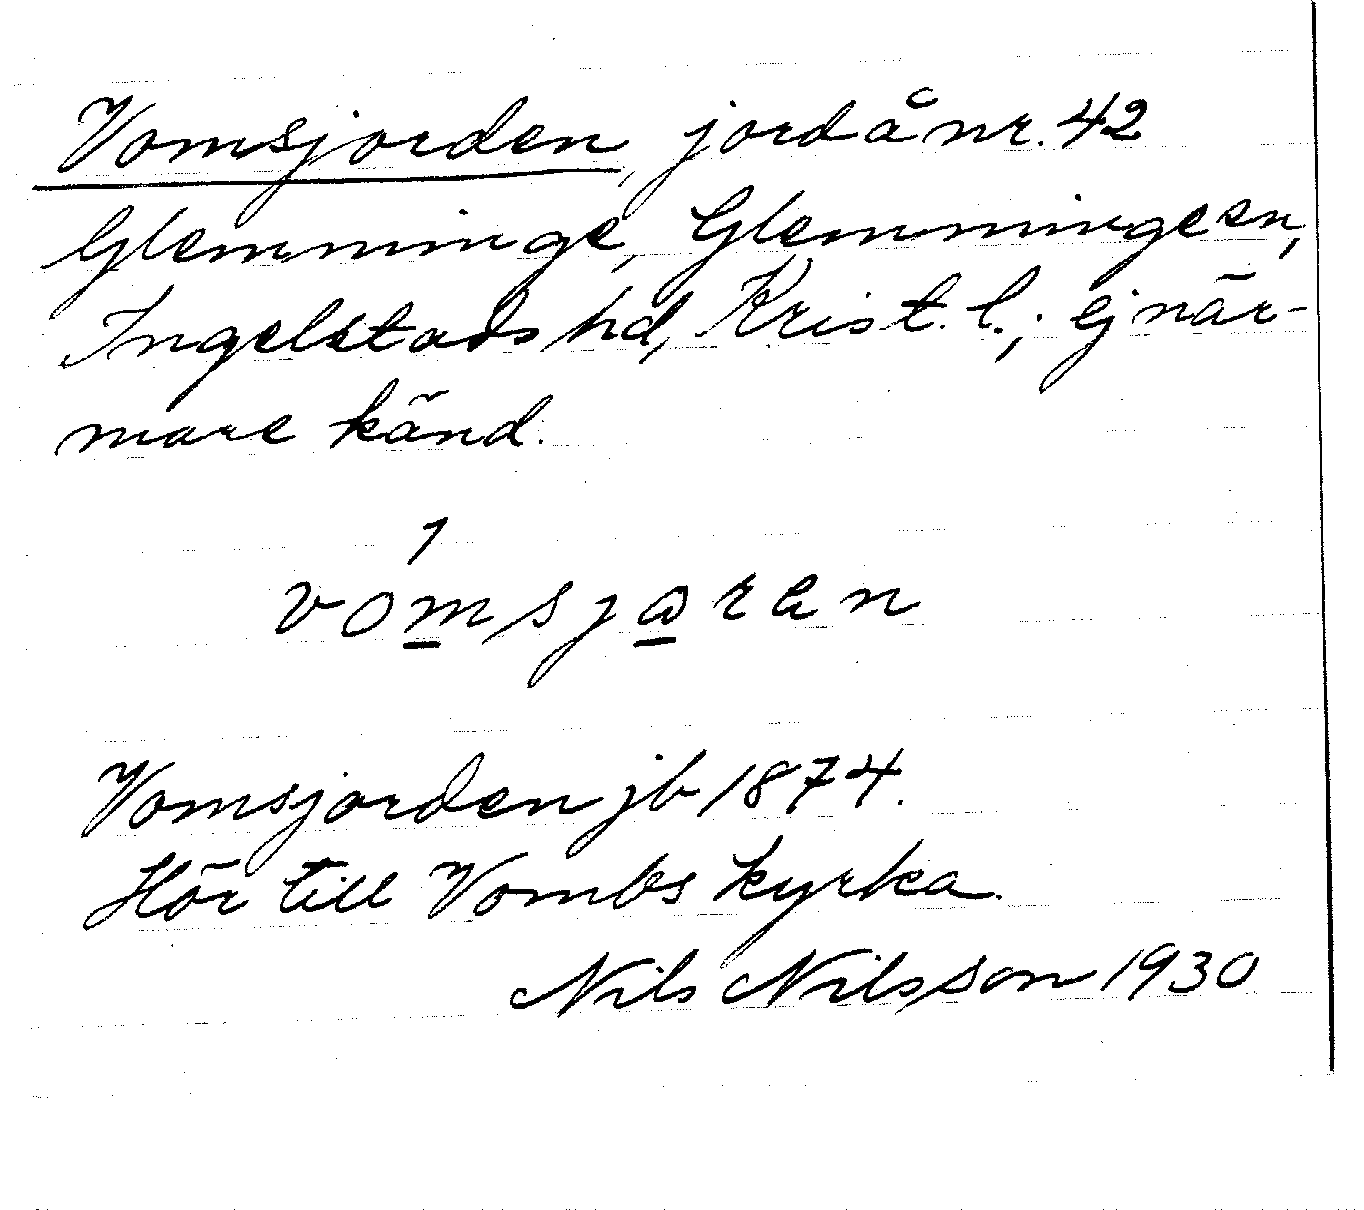 Vomsjorden, jord å nr. 42
Glemminge, Glemminge sn,
Ingelstads hd, Krist. l.; ej när-
mare känd.
1
vomsjaren
Vomsjorden jb 1874.
Hör till Vombs kyrka.
Nils Nilsson 1930